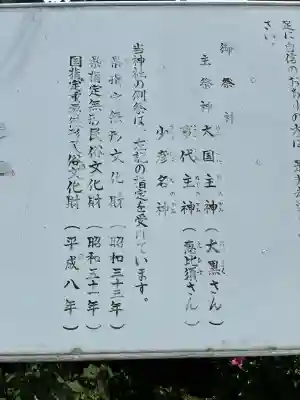 足に自信のお
さい。
御祭神
主祭神 大国主神(大黒さん)
事代主神(恵比須さん)
少彦名神
当神社の例祭は、左記の指定を受けています。
県指定無形文化財(昭和三十三年)
県指定無形民俗文化財(昭和五十一年)
国指定重要無形民俗文化財(平成八年)